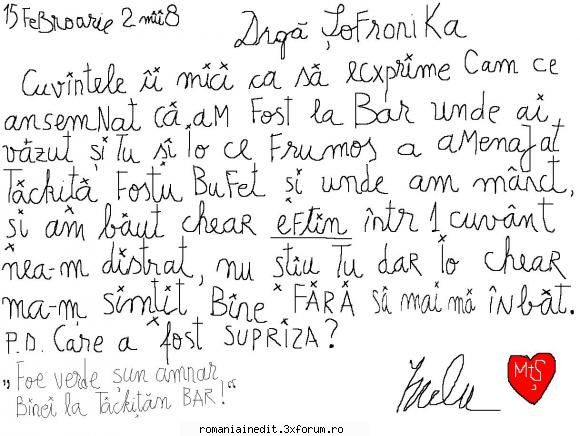 15 FeBroarie 2 mii8
Drgă ȘoFroniKa
Cuvintele îi mici ca să ecxprime Cam ce
ansemNat Că aM Fost la Bar unde ai
văzut și Tu și Io ce Frumos a aMenaJat
Tăckiță Fostu BuFet și unde am mânct,
și am băut chear eFtin într 1 cuvânt
nea-m distrat, nu știu Tu dar Io chear
ma-m simtit Bine FĂRĂ Să mai mă înbăt.
P.D. Care a fost SUPRIZA?
„Foe verde șun amnar
Binei la Tăckițăn BAR!“
MtȘ
romaniainedit.3xforum.ro